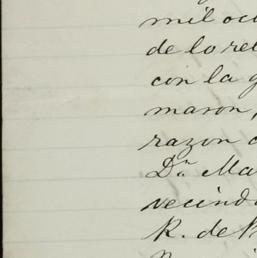 mil oc
de lo re
con la g
maron,
razon
Dn. Ma
vecind
R. de